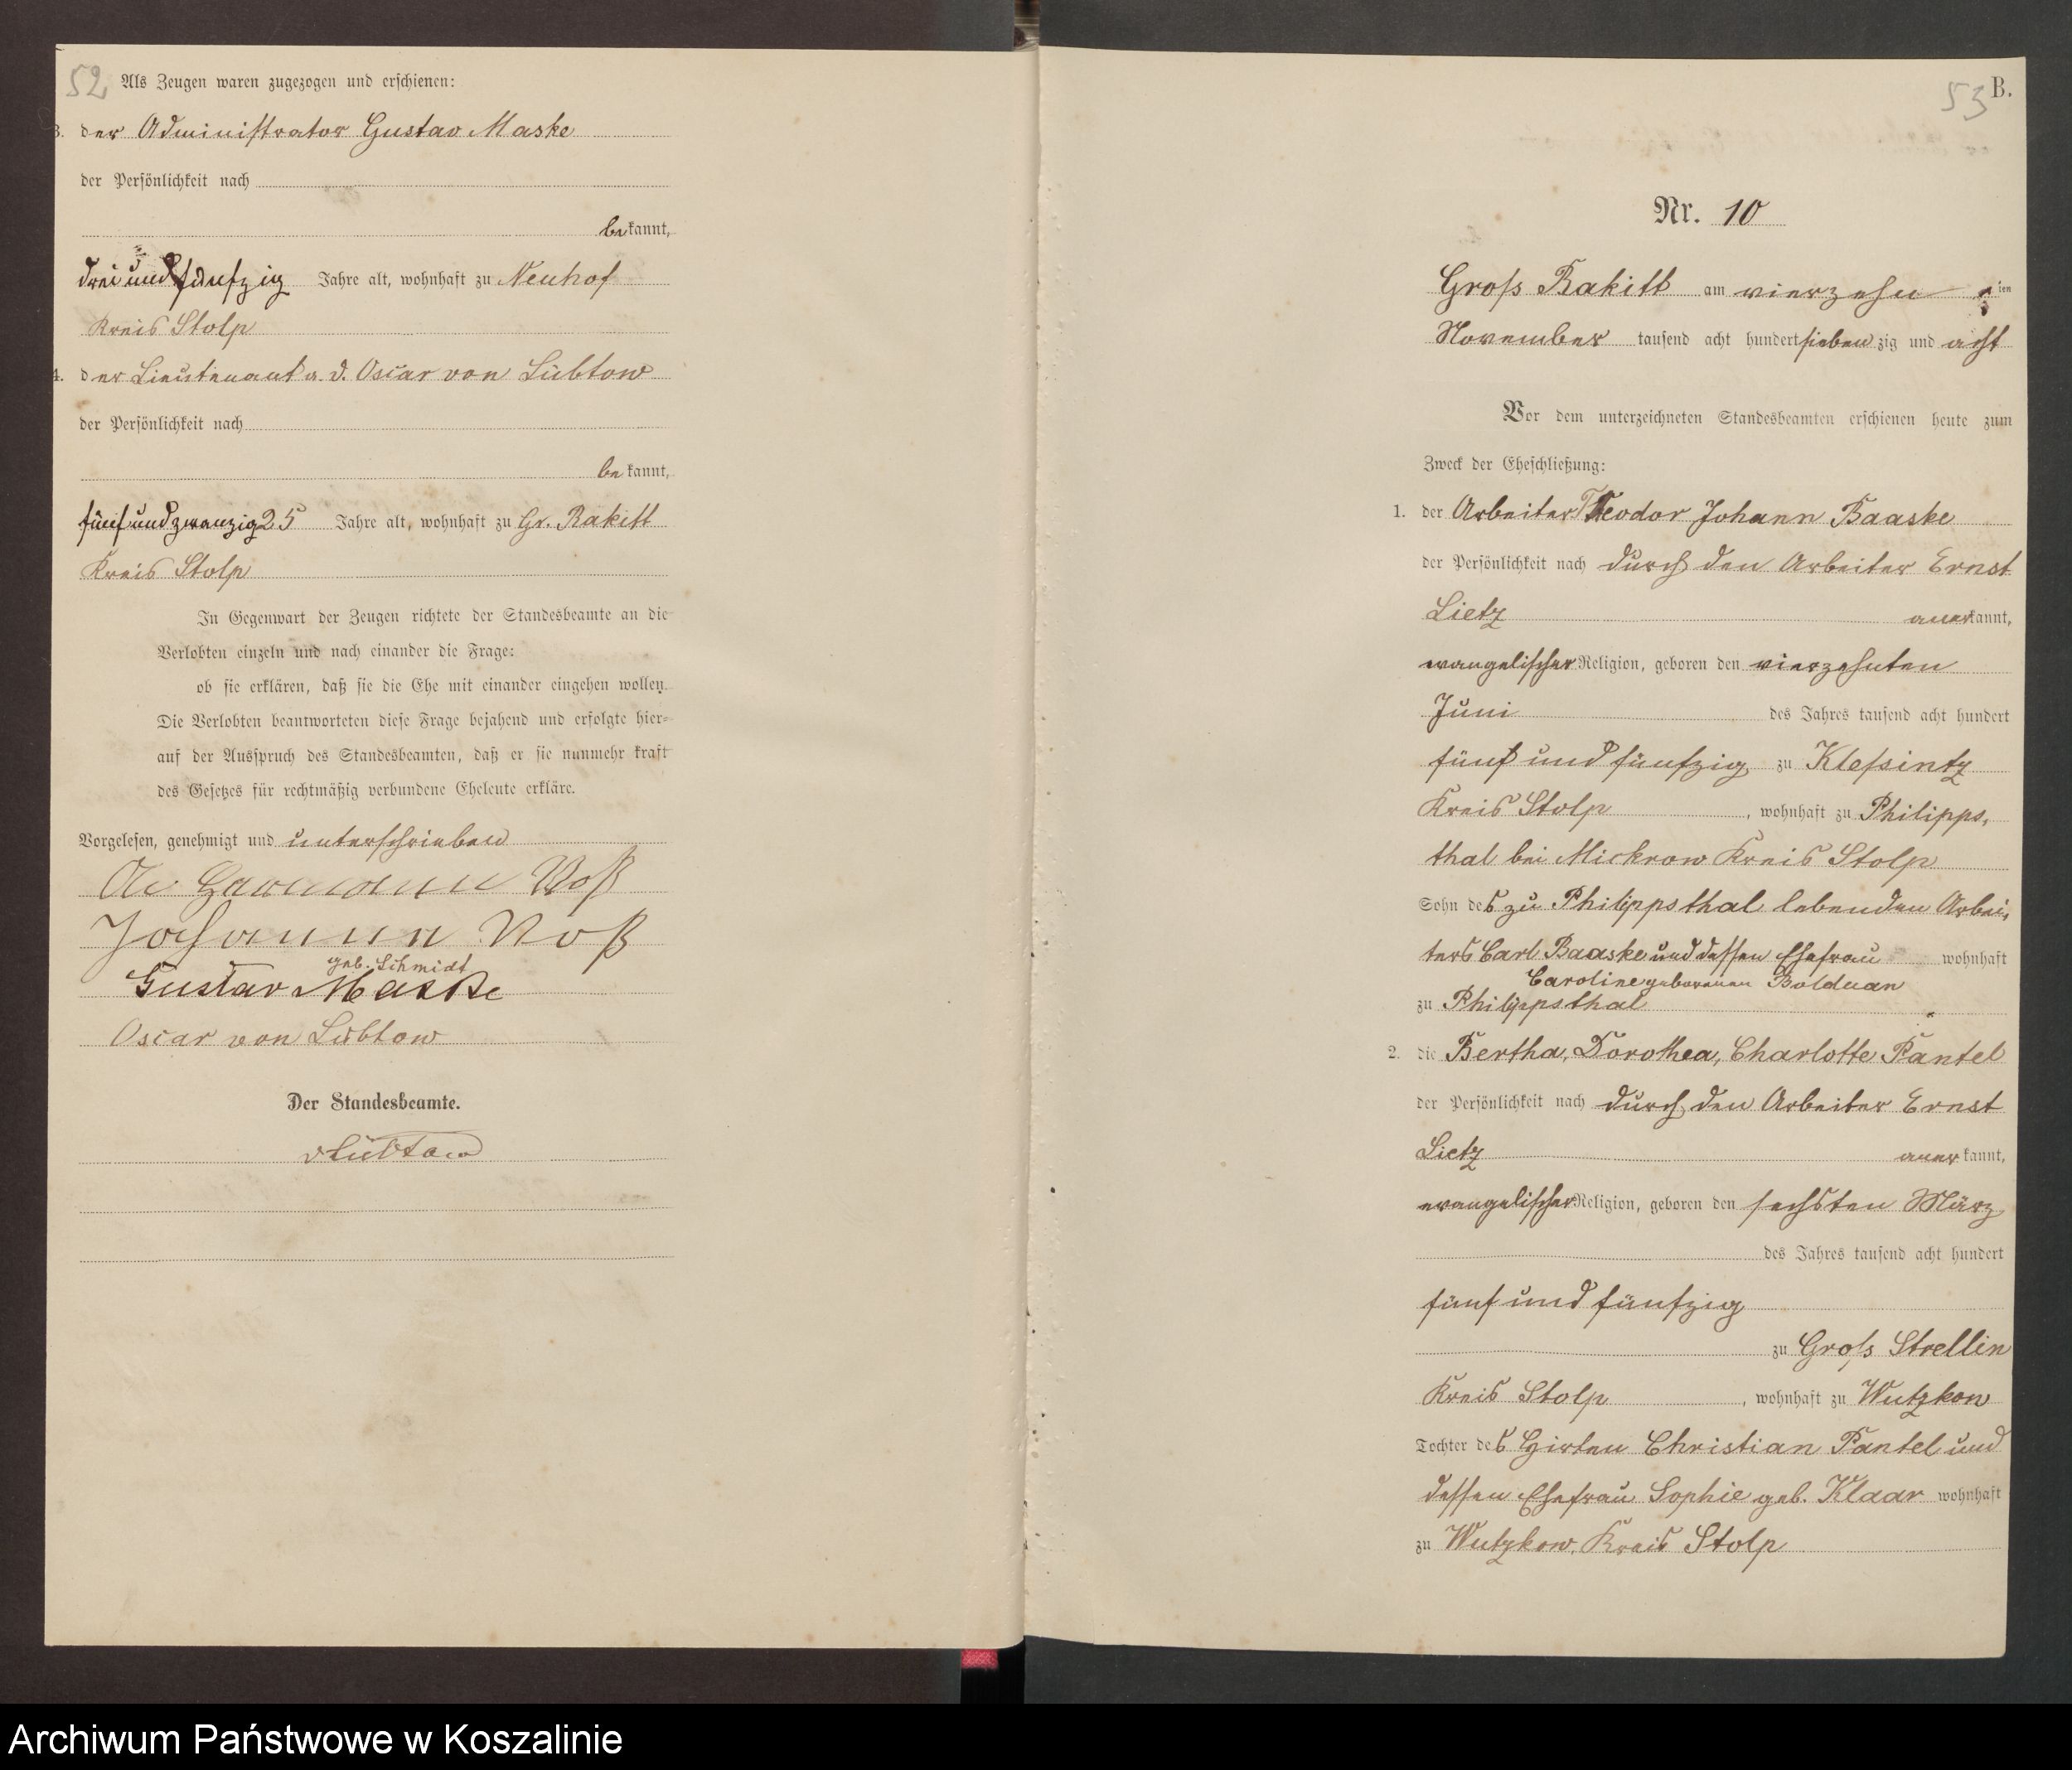 52
Als Zeugen waren zugezogen und erschienen:
3. der Administrator Gustav Maske
der Persönlichkeit nach
bekannt,
drei und fünfzig Jahre alt, wohnhaft zu Neuhof
Kreis Stolp
4. der Lieutenant a. D. Oscar von Lübtow
der Persönlichkeit nach
bekannt,
fünf und zwanzig 25 Jahre alt, wohnhaft zu Gr. Rakitt
Kreis Stolp
In Gegenwart der Zeugen richtete der Standesbeamte an die
Verlobten einzeln und nach einander die Frage:
ob sie erklären, daß sie die Ehe mit einander eingehen wollen.
Die Verlobten beantworteten diese Frage bejahend und erfolgte hier-
auf der Ausspruch des Standesbeamten, daß er sie nunmehr kraft
des Gesetzes für rechtmäßig verbundene Eheleute erkläre.
Vorgelesen, genehmigt und unterschrieben
Voß
Johanna Voß
geb. Schmidt
Gustav Maske
Oscar von Lübtow
Der Standesbeamte.
vLübtow
53
B.
Nr. 10
Groß Rakitt am vierzehn ten
November tausend acht hundert siebenzig und acht
Vor dem unterzeichneten Standesbeamten erschienen heute zum
Zweck der Eheschließung:
1. der Arbeiter Theodor Johann Baaske
der Persönlichkeit nach durch den Arbeiter Ernst
Lietz anerkannt,
evangelischer Religion, geboren den vierzehnten
Juni des Jahres tausend acht hundert
fünf und fünfzig zu Kleßintz
Kreis Stolp, wohnhaft zu Philipps,
thal bei Mickrow Kreis Stolp
Sohn des zu Philippsthal lebenden Arbei,
ters Carl Baaske und dessen Ehefrau wohnhaft
Caroline geborenen Bolduan
zu Philippsthal
2. die Bertha, Dorothea, Charlotte Pantel
der Persönlichkeit nach durch den Arbeiter Ernst
Lietz anerkannt,
evangelischer Religion, geboren den sechsten März
des Jahres tausend acht hundert
fünf und fünfzig
zu Groß Strellin
Kreis Stolp, wohnhaft zu Wutzkow
Tochter des Hirten Christian Pantel und
dessen Ehefrau Sophie geb. Klaar wohnhaft
zu Wutzkow, Kreis Stolp
Archiwum Państwowe w Koszalinie